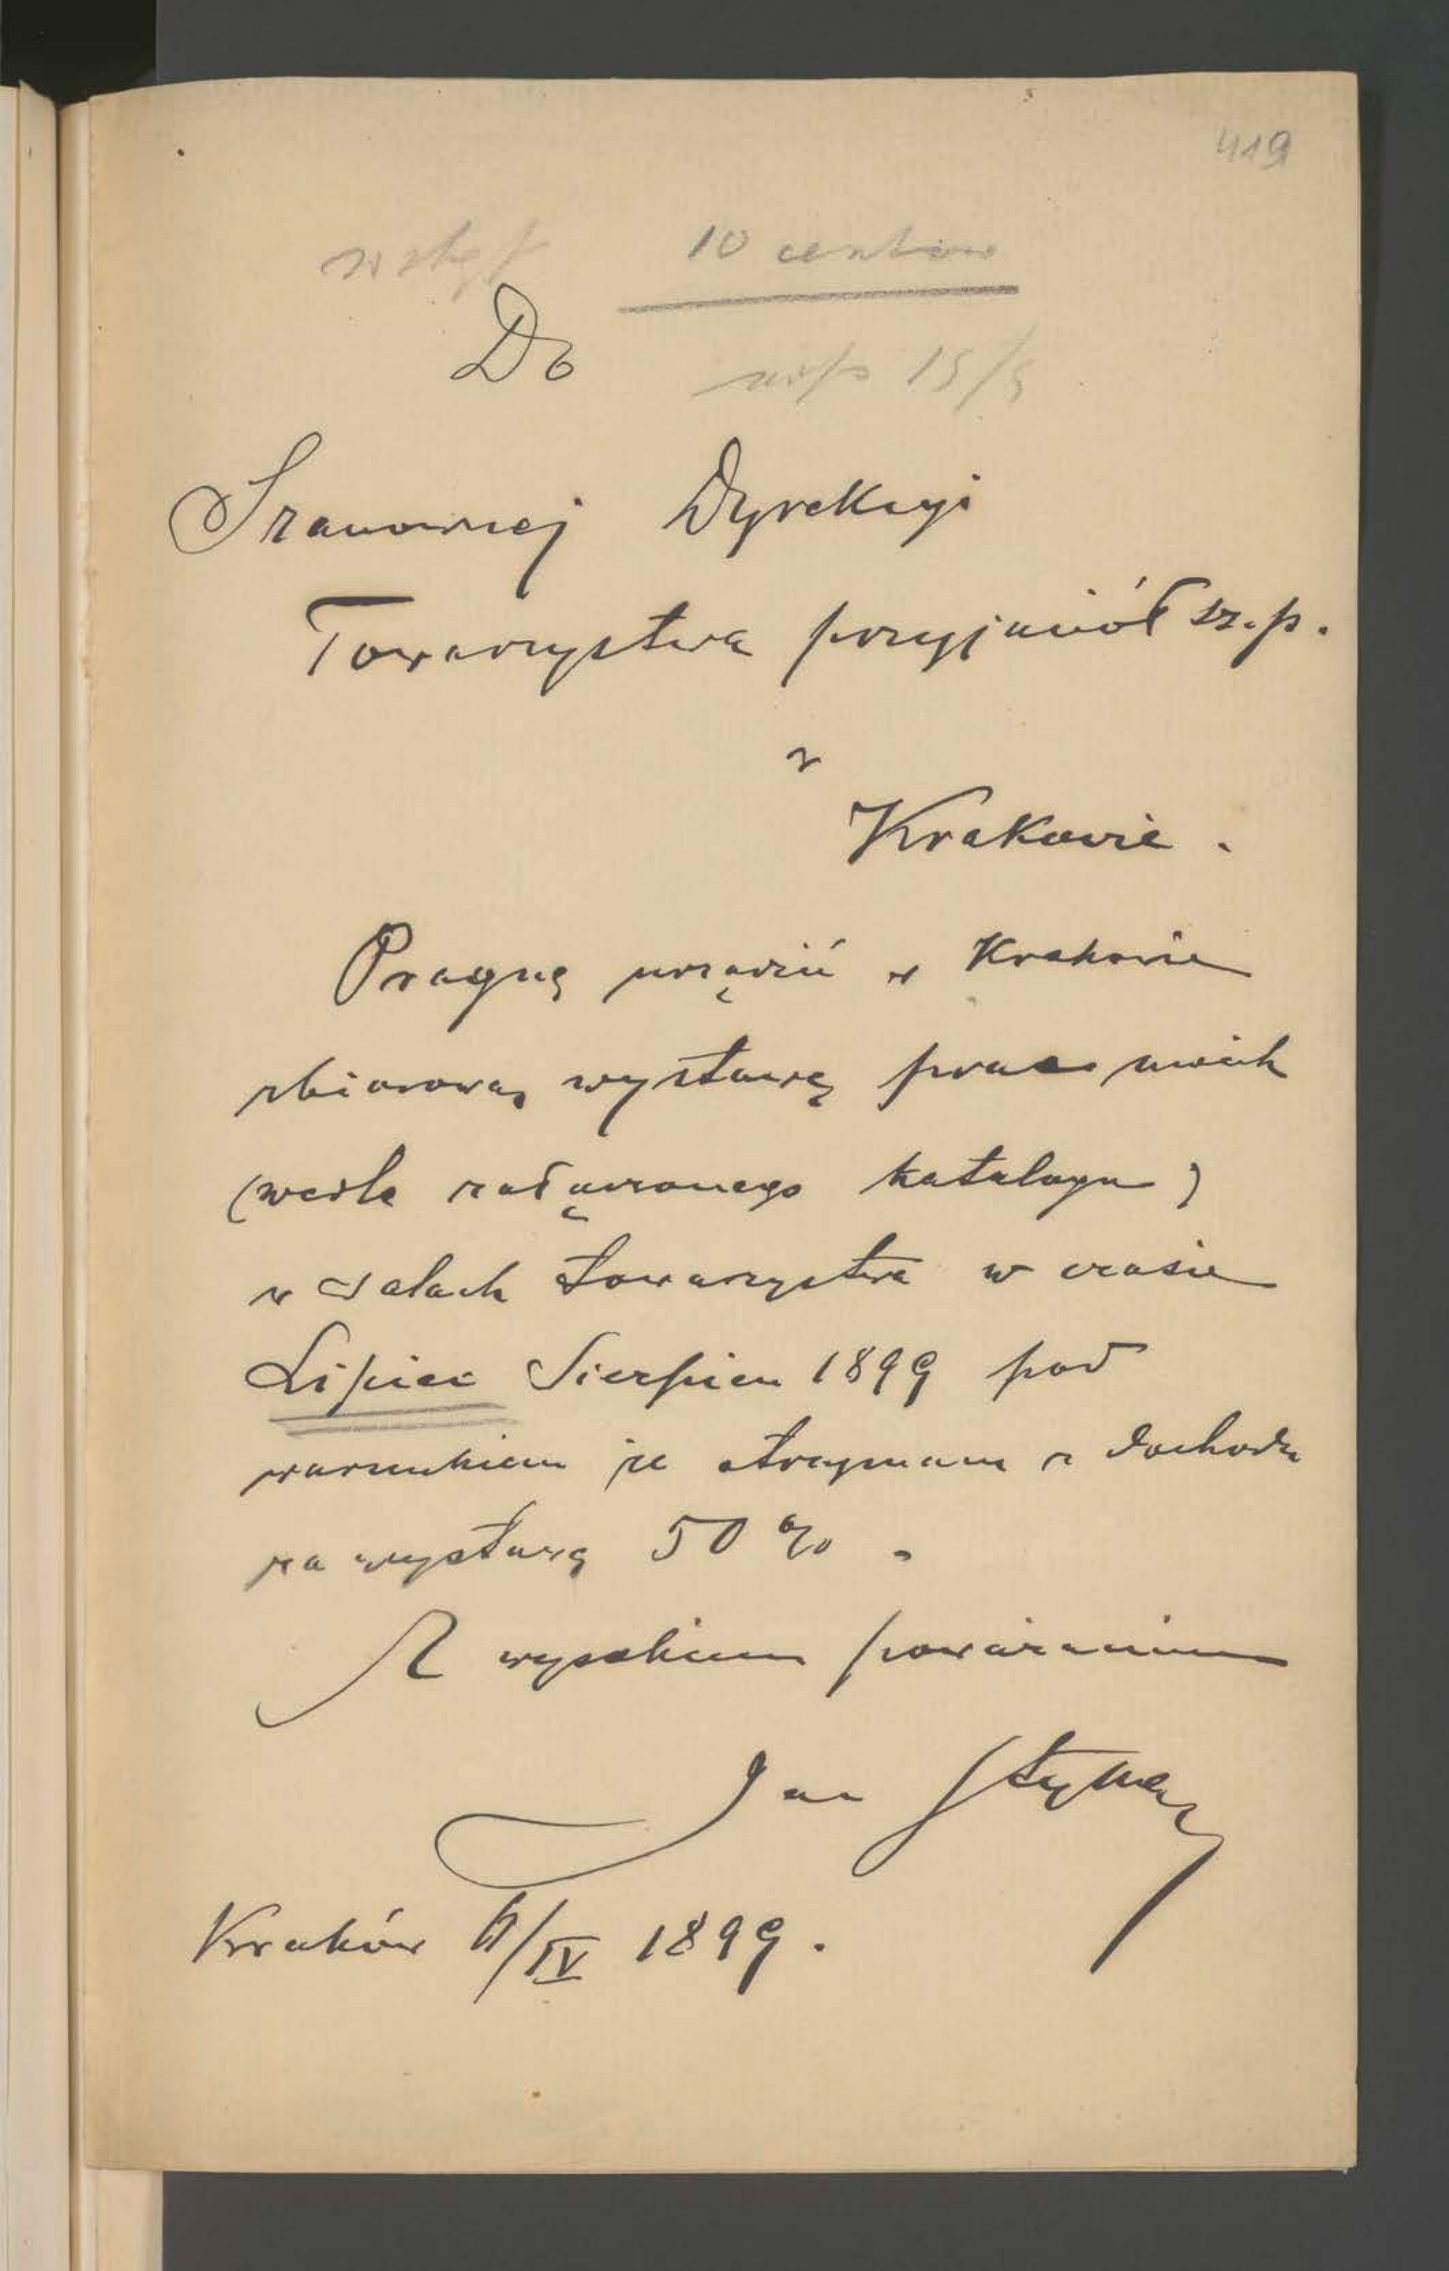 419
wstęp 10 centów
Do
15/5
Szanownej Dyrekcyi
Towarzystwa przyjaciół sz. p.
w
Krakowie.
Pragnę urządzić w Krakowie
zbiorową wystawę prac moich
(wedle załączonego katalogu)
w salach towarzystwa w czasie
Lipiec Sierpien 1899 pod
warunkiem że otrzymam z dochodu
za wystawę 50 %.
Z wysokiem poważaniem
Jan Styka
Kraków /IV 1899.